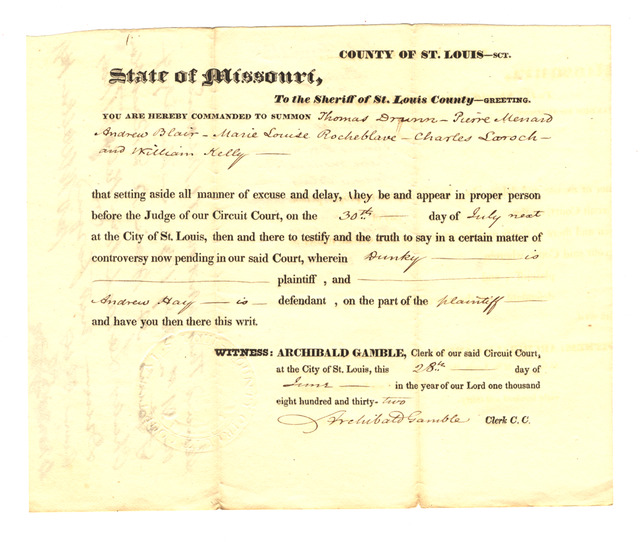 COUNTY OF ST. LOUIS—SCT.
State of Missouri,
To the Sheriff of St. Louis County—GREETING.
YOU ARE HEREBY COMMANDED TO SUMMON Thomas Drunn - Pierre Menard
Andrew Blair - Marie Louise Rocheblave - Charles Laroch -
and William Kelly —
that setting aside all manner of excuse and delay, they be and appear in proper person
before the Judge of our Circuit Court, on the 30th — day of July next
at the City of St. Louis, then and there to testify and the truth to say in a certain matter of
controversy now pending in our said Court, wherein Dunky — is
— plaintiff , and —
Andrew Hay — is - defendant , on the part of the plaintiff —
and have you then there this writ.
WITNESS: ARCHIBALD GAMBLE, Clerk of our said Circuit Court,
at the City of St. Louis, this 28th — day of
June — in the year of our Lord one thousand
eight hundred and thirty-two
Archibald Gamble Clerk C. C.